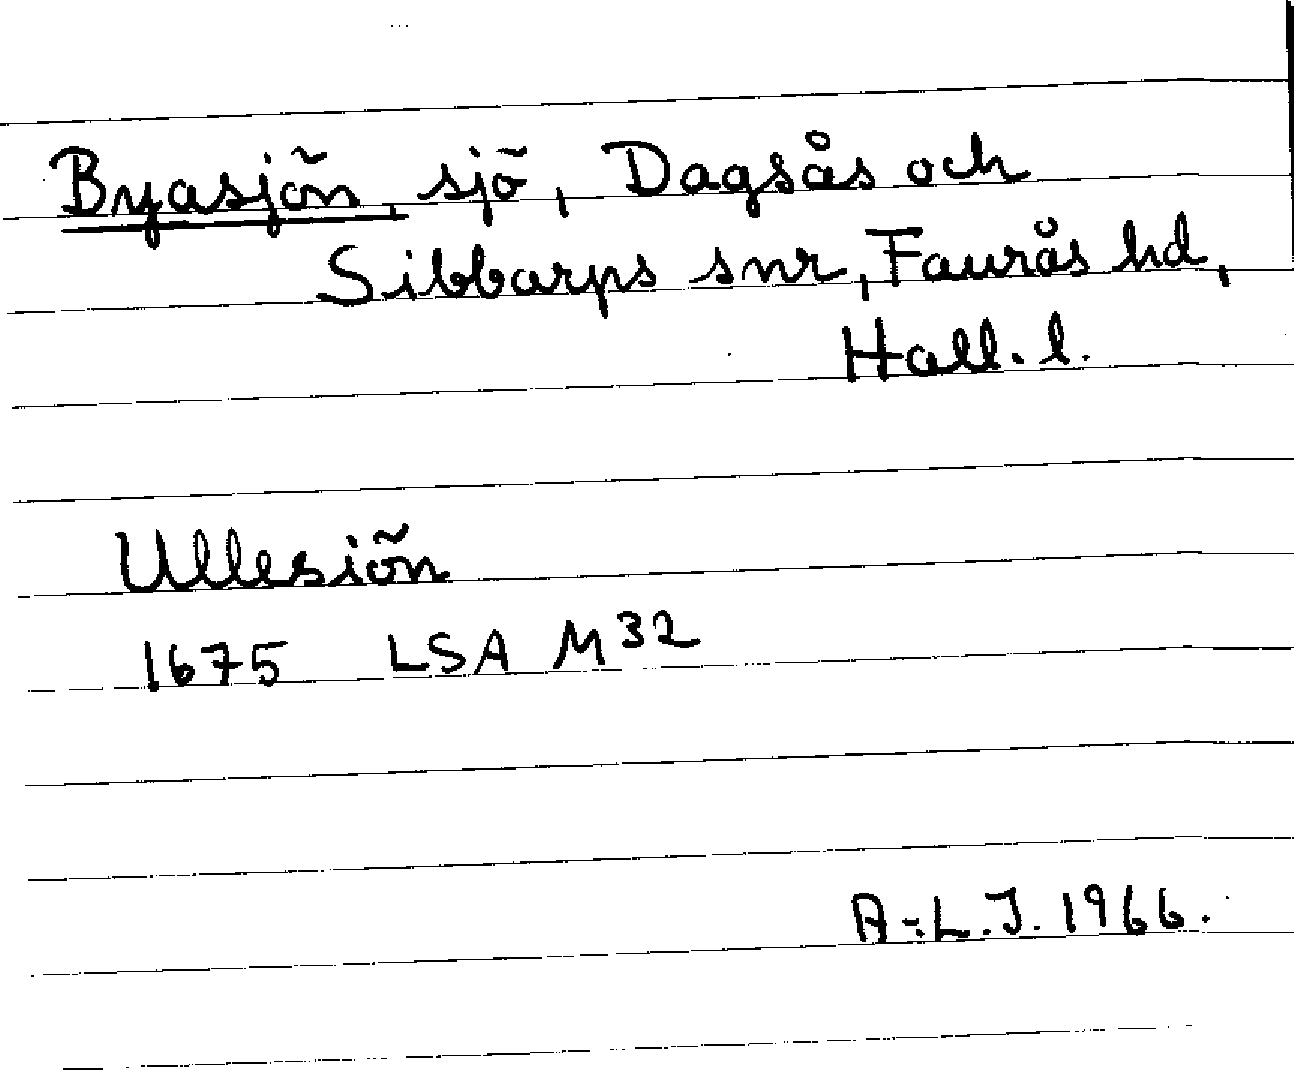 Byasjön, sjö, Dagsås och
Sibbarps snr, Faurås hd,
Hall. l.
Ullesiön
1675 LSA M32
A-L.J. 1966.